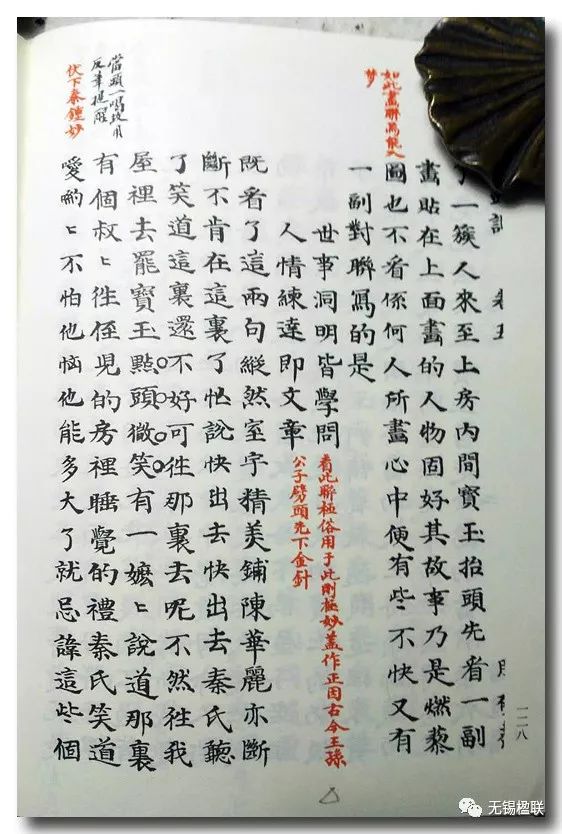 一二八
如此畫聯焉能入
夢
了一簇人來至上房內間寶玉抬頭先看一副
畫貼在上面畫的人物固好其故事乃是燃藜
圖也不看係何人所畫心中便有些不快又有
一副對聯寫的是
世事洞明皆學問
人情練達即文章
看此聯極俗用于此則極妙蓋作正因古今王孫
公子劈頭先下金針
既看了這兩句縱然室宇精美鋪陳華麗亦斷
斷不肯在這裏了忙說快出去快出去秦氏聽
了笑道這裏還不好可徃那裏去呢不然徃我
屋裡去罷寶玉點頭微笑有一嬤〻說道那裏
有個叔〻徃侄兒的房裡睡覺的禮秦氏笑道
噯喲〻不怕他惱他能多大了就忌諱這些個
當頭一喝故用
反筆提醒
伏下秦鍾妙
无锡楹联